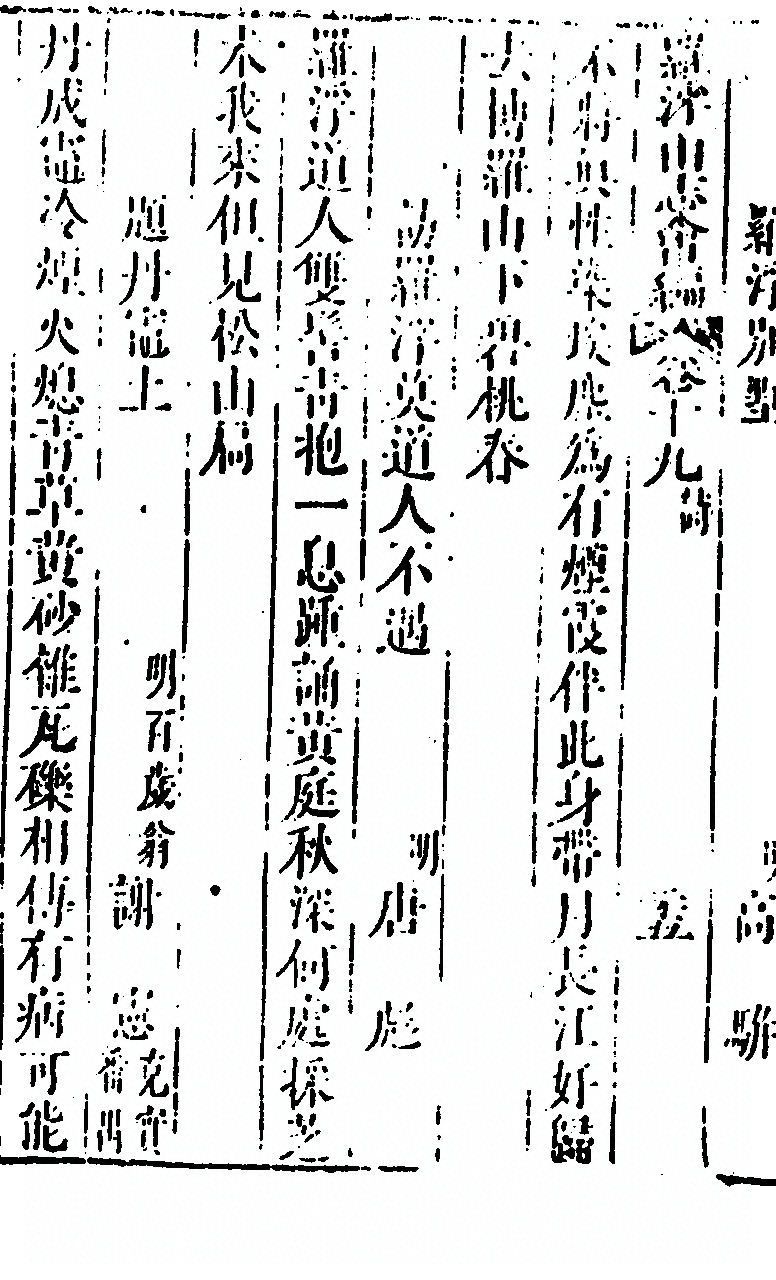 羅浮別墅 明 高駢
羅浮山志會編 卷十九 詩 五
不將真性染埃塵為有煙霞伴此身帶月長江好歸
去博羅山下碧桃春
訪羅浮黃道人不遇 明 唐彪
羅浮道人雙髻青抱一息踵誦黃庭秋深何處採芝
朮我來但見松山扃
題丹竈上 明百歲翁謝 憲 克實 番禺
丹成竈冷煙火熄青草黃砂雜瓦礫相傳有病可能